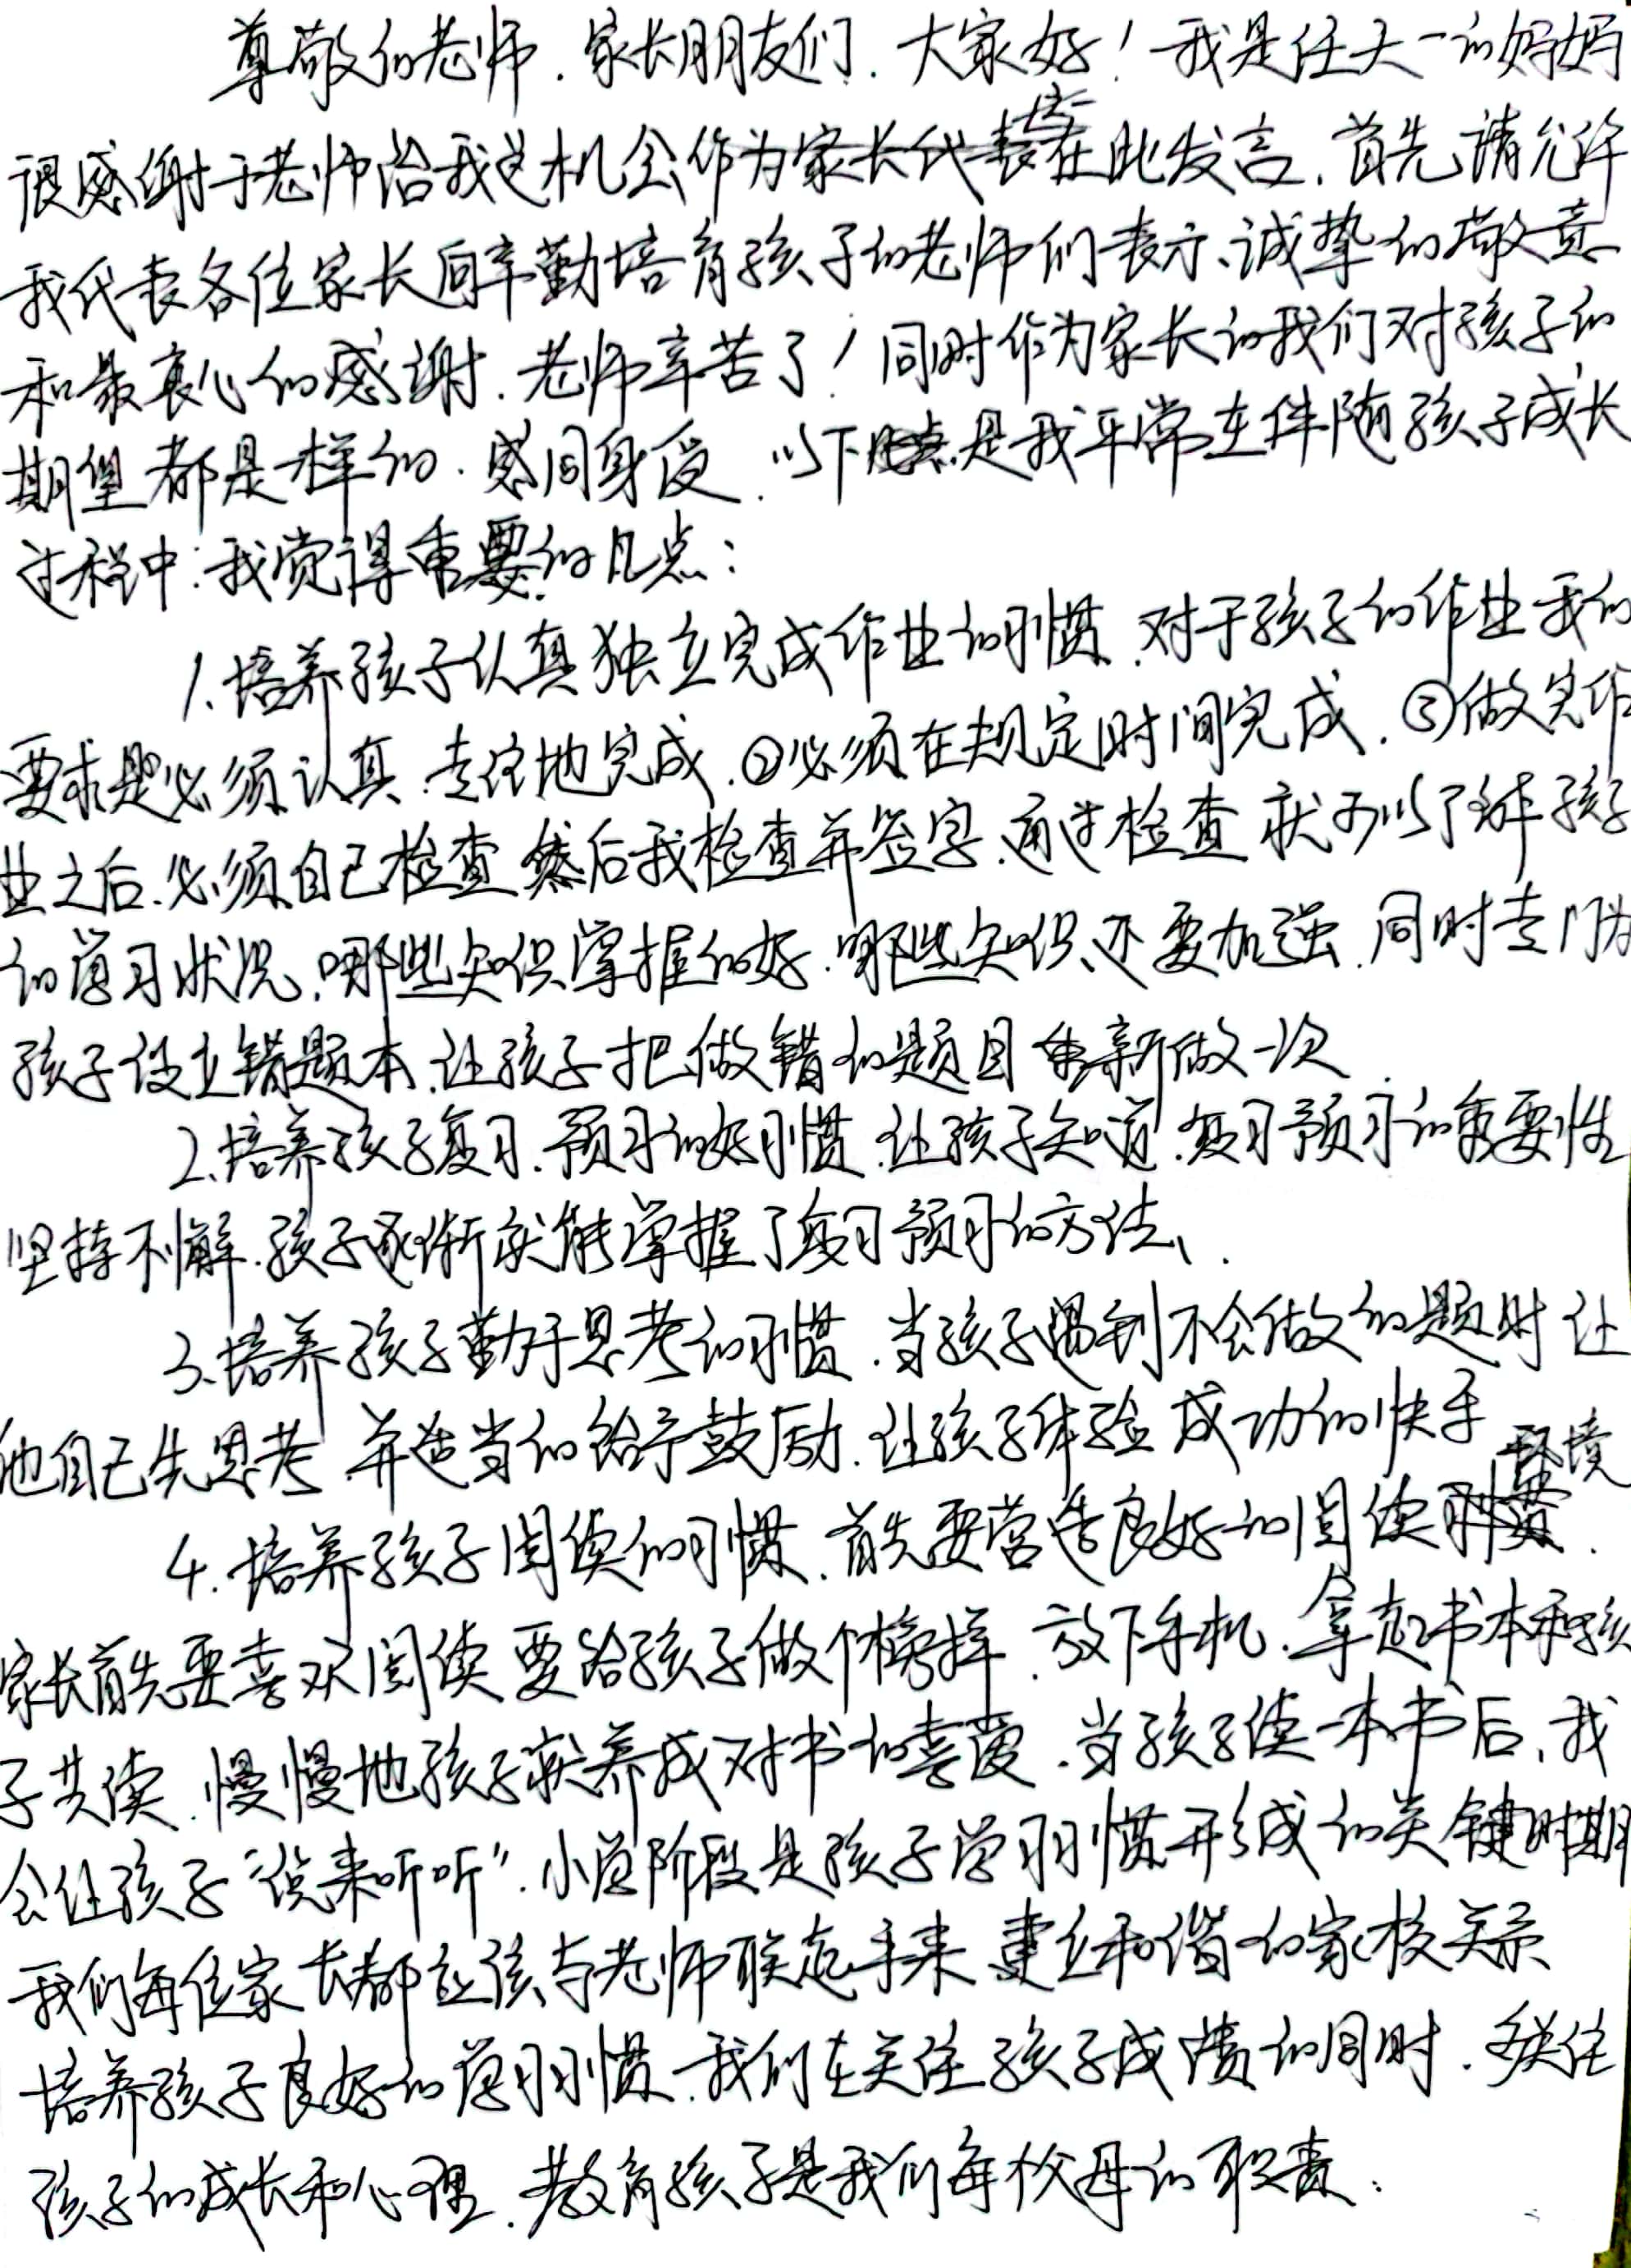 尊敬的老师、家长朋友们、大家好！我是任天一的妈妈
很感谢于老师给我这机会作为家长代表在此发言，首先请允许
我代表各位家长向辛勤培育孩子的老师们表示诚挚的敬意
和最衷心的感谢，老师辛苦了！同时作为家长的我们对孩子的
期望都是一样的，感同身受，以下是我平常在伴随孩子成长
过程中，我觉得重要的几点：
1.培养孩子认真独立完成作业的习惯，对于孩子的作业我的
要求是必须认真、专注地完成，②必须在规定时间完成，③做完作
业之后，必须自己检查，然后我检查并签字，通过检查就可以了解孩子
的学习状况，哪些知识掌握的好，哪些知识还要加强，同时专门为
孩子设立错题本，让孩子把做错的题目重新做一次
2、培养孩子复习、预习的好习惯，让孩子知道，复习预习的重要性
坚持不懈，孩子逐渐就能掌握了复习预习的方法、
3、培养孩子勤于思考的习惯，当孩子遇到不会做的题时让
他自己先思考，并适当的给予鼓励，让孩子体验成功的快乐
4.培养孩子阅读的习惯，首先要营造良好的阅读环境，
家长首先要喜欢阅读，要给孩子做个榜样，放下手机，拿起书本和孩
子共读，慢慢地孩子就养成对书的喜爱，当孩子读一本书后，我
会让孩子“说来听听”，小学阶段是孩子学习习惯形成的关键时期
我们每位家长都应该与老师联起手来，建立和谐的家校关系
培养孩子良好的学习习惯，我们在关注孩子成绩的同时，多关注
孩子的成长和心理，教育孩子是我们每个父母的职责，